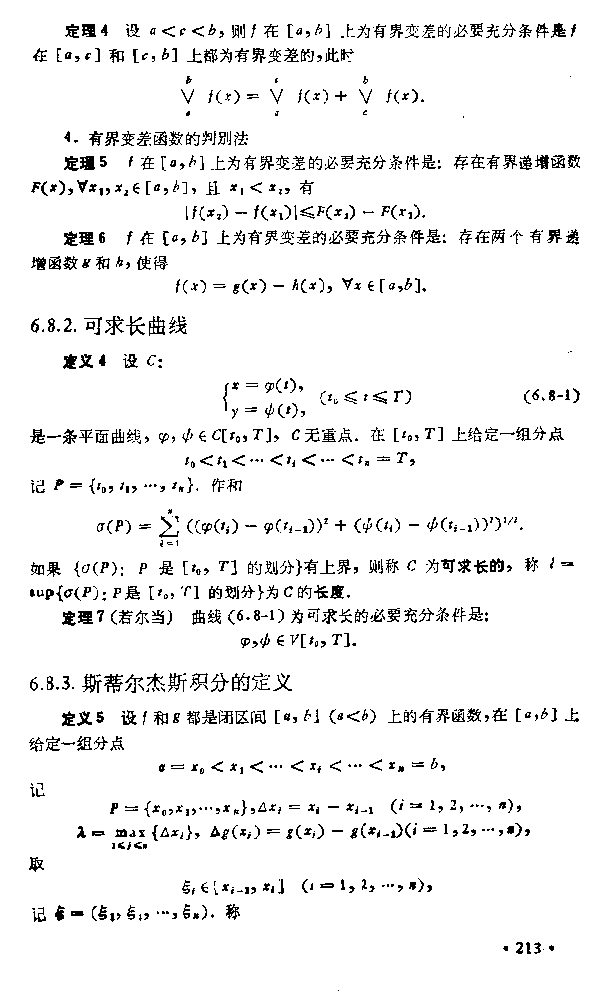 定理4 设 a<c<b, 则 f 在 [a,b] 上为有界变差的必要充分条件是 f
在 [a,c] 和 [c,b] 上都为有界变差的,此时
b c b
⋁ f(x) = ⋁ f(x) + ⋁ f(x).
a a c
4. 有界变差函数的判别法
定理5 f 在 [a,b] 上为有界变差的必要充分条件是: 存在有界递增函数
F(x), ∀x₁, x₂∈[a,b], 且 x₁<x₂, 有
|f(x₂) − f(x₁)|≤F(x₂) − F(x₁).
定理6 f 在 [a,b] 上为有界变差的必要充分条件是: 存在两个有界递
增函数 g 和 h, 使得
f(x) = g(x) − h(x), ∀x∈[a,b].
6.8.2. 可求长曲线
定义4 设 C:
{x = φ(t), y = ψ(t), (t₀≤t≤T) (6.8-1)
是一条平面曲线, φ, ψ∈C[t₀, T], C 无重点. 在 [t₀, T] 上给定一组分点
t₀<t₁<⋯<tᵢ<⋯<tₙ = T,
记 P = {t₀, t₁, ⋯, tₙ}. 作和
σ(P) = ∑ᵢ₌₁ⁿ ((φ(tᵢ) − φ(tᵢ₋₁))² + (ψ(tᵢ) − ψ(tᵢ₋₁))²)^{1/2}.
如果 {σ(P): P 是 [t₀, T] 的划分}有上界, 则称 C 为可求长的, 称 l =
sup{σ(P): P是 [t₀, T] 的划分}为C的长度.
定理7 (若尔当) 曲线 (6.8-1) 为可求长的必要充分条件是:
φ,ψ∈V[t₀, T].
6.8.3. 斯蒂尔杰斯积分的定义
定义5 设 f 和 g 都是闭区间 [a,b] (a<b) 上的有界函数,在 [a,b] 上
给定一组分点
a = x₀<x₁<⋯<xᵢ<⋯<xₙ = b,
记
P = {x₀,x₁,⋯,xₙ},Δxᵢ = xᵢ − xᵢ₋₁ (i = 1, 2, ⋯, n),
λ = max{Δxᵢ}, Δg(xᵢ) = g(xᵢ) − g(xᵢ₋₁)(i = 1,2,⋯,n),
1≤i≤n
取
ξᵢ∈[xᵢ₋₁, xᵢ] (i = 1, 2, ⋯, n),
记 ξ = (ξ₁, ξ₂, ⋯, ξₙ). 称
• 213 •